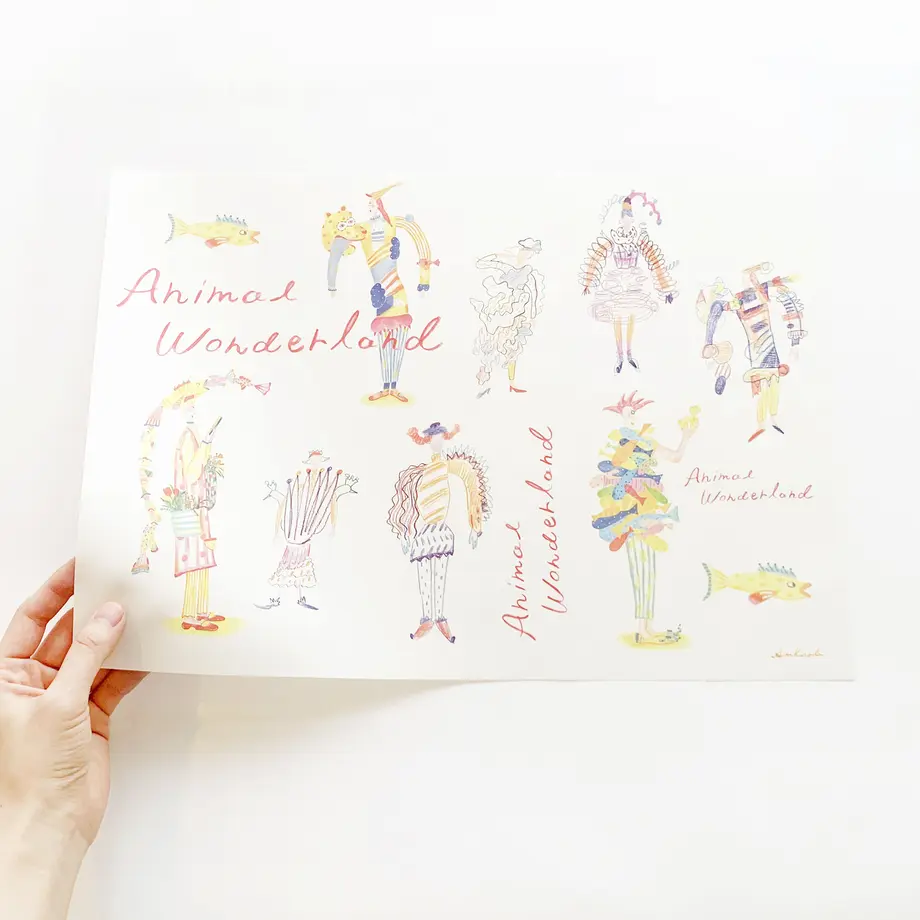 Animal
Wonderland
Animal
Wonderland
Animal
Wonderland